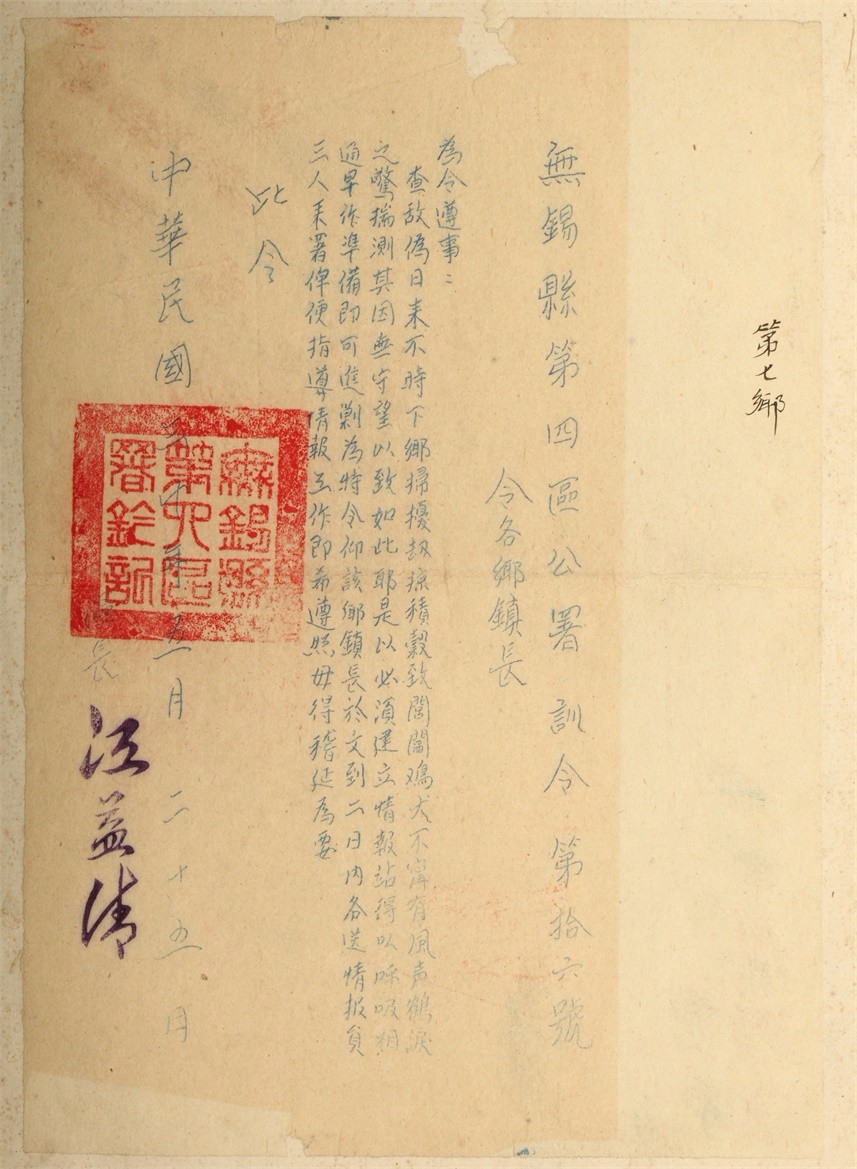 第七鄉
無錫縣第四區公署訓令 第拾六號
令各鄉鎮長
為令遵事：
查敌偽日来不時下鄉掃擾刼掠積糓致閭閻鳮犬不甯有風声鶴淚
之驚揣測其因無守望以致如此耶是以必湏建立情報站得以呼吸相
通早作準備即可進剿為特令仰該鄉鎮長於文到二日内各送情报員
三人来署俾便指導情報工作即希遵照毋得稽延為要
此令
中華民國 年五月二十五日
無錫縣
第四區
署鈐記
區長
江益清